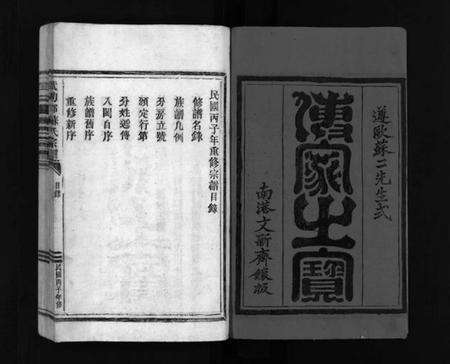 遵歐蘇二先生式
傳家之寶
南港文新齋鋟版
民國丙子年重修宗譜目錄
修譜名錄
族譜凡例
分房立號
頒定行第
分姓遞傳
入閩自序
族譜舊序
重修新序
目錄
民國丙子年修